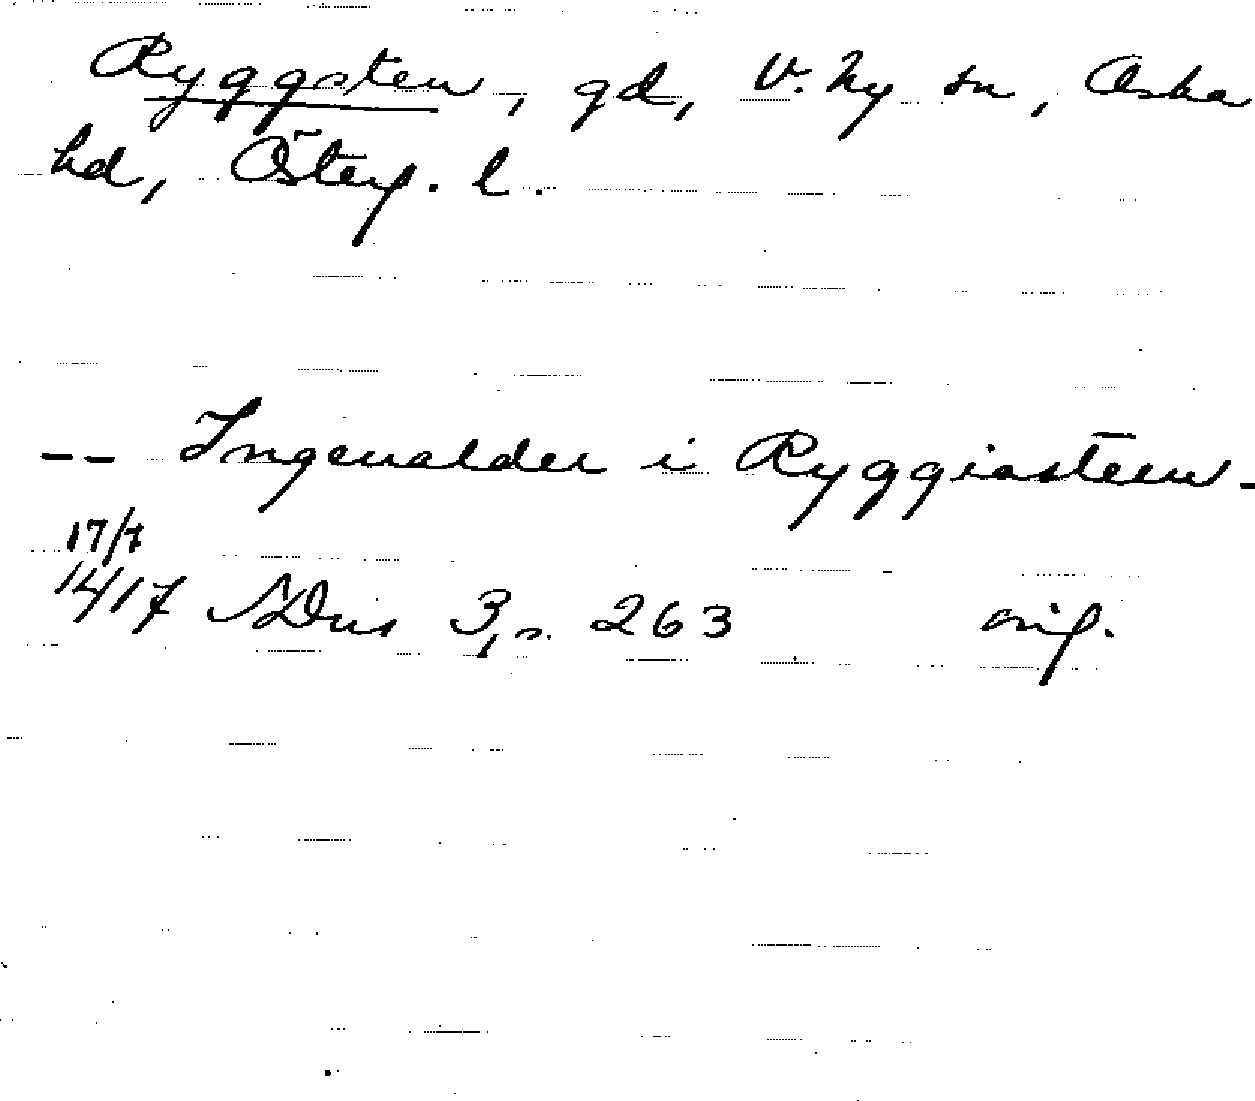 Ryggsten, gd, V. Ny sn, Aska
hd, Österg. l.
-- Ingeualder i Ryggiasteen -
17/7
1417 SDns 3, s. 263 orig.